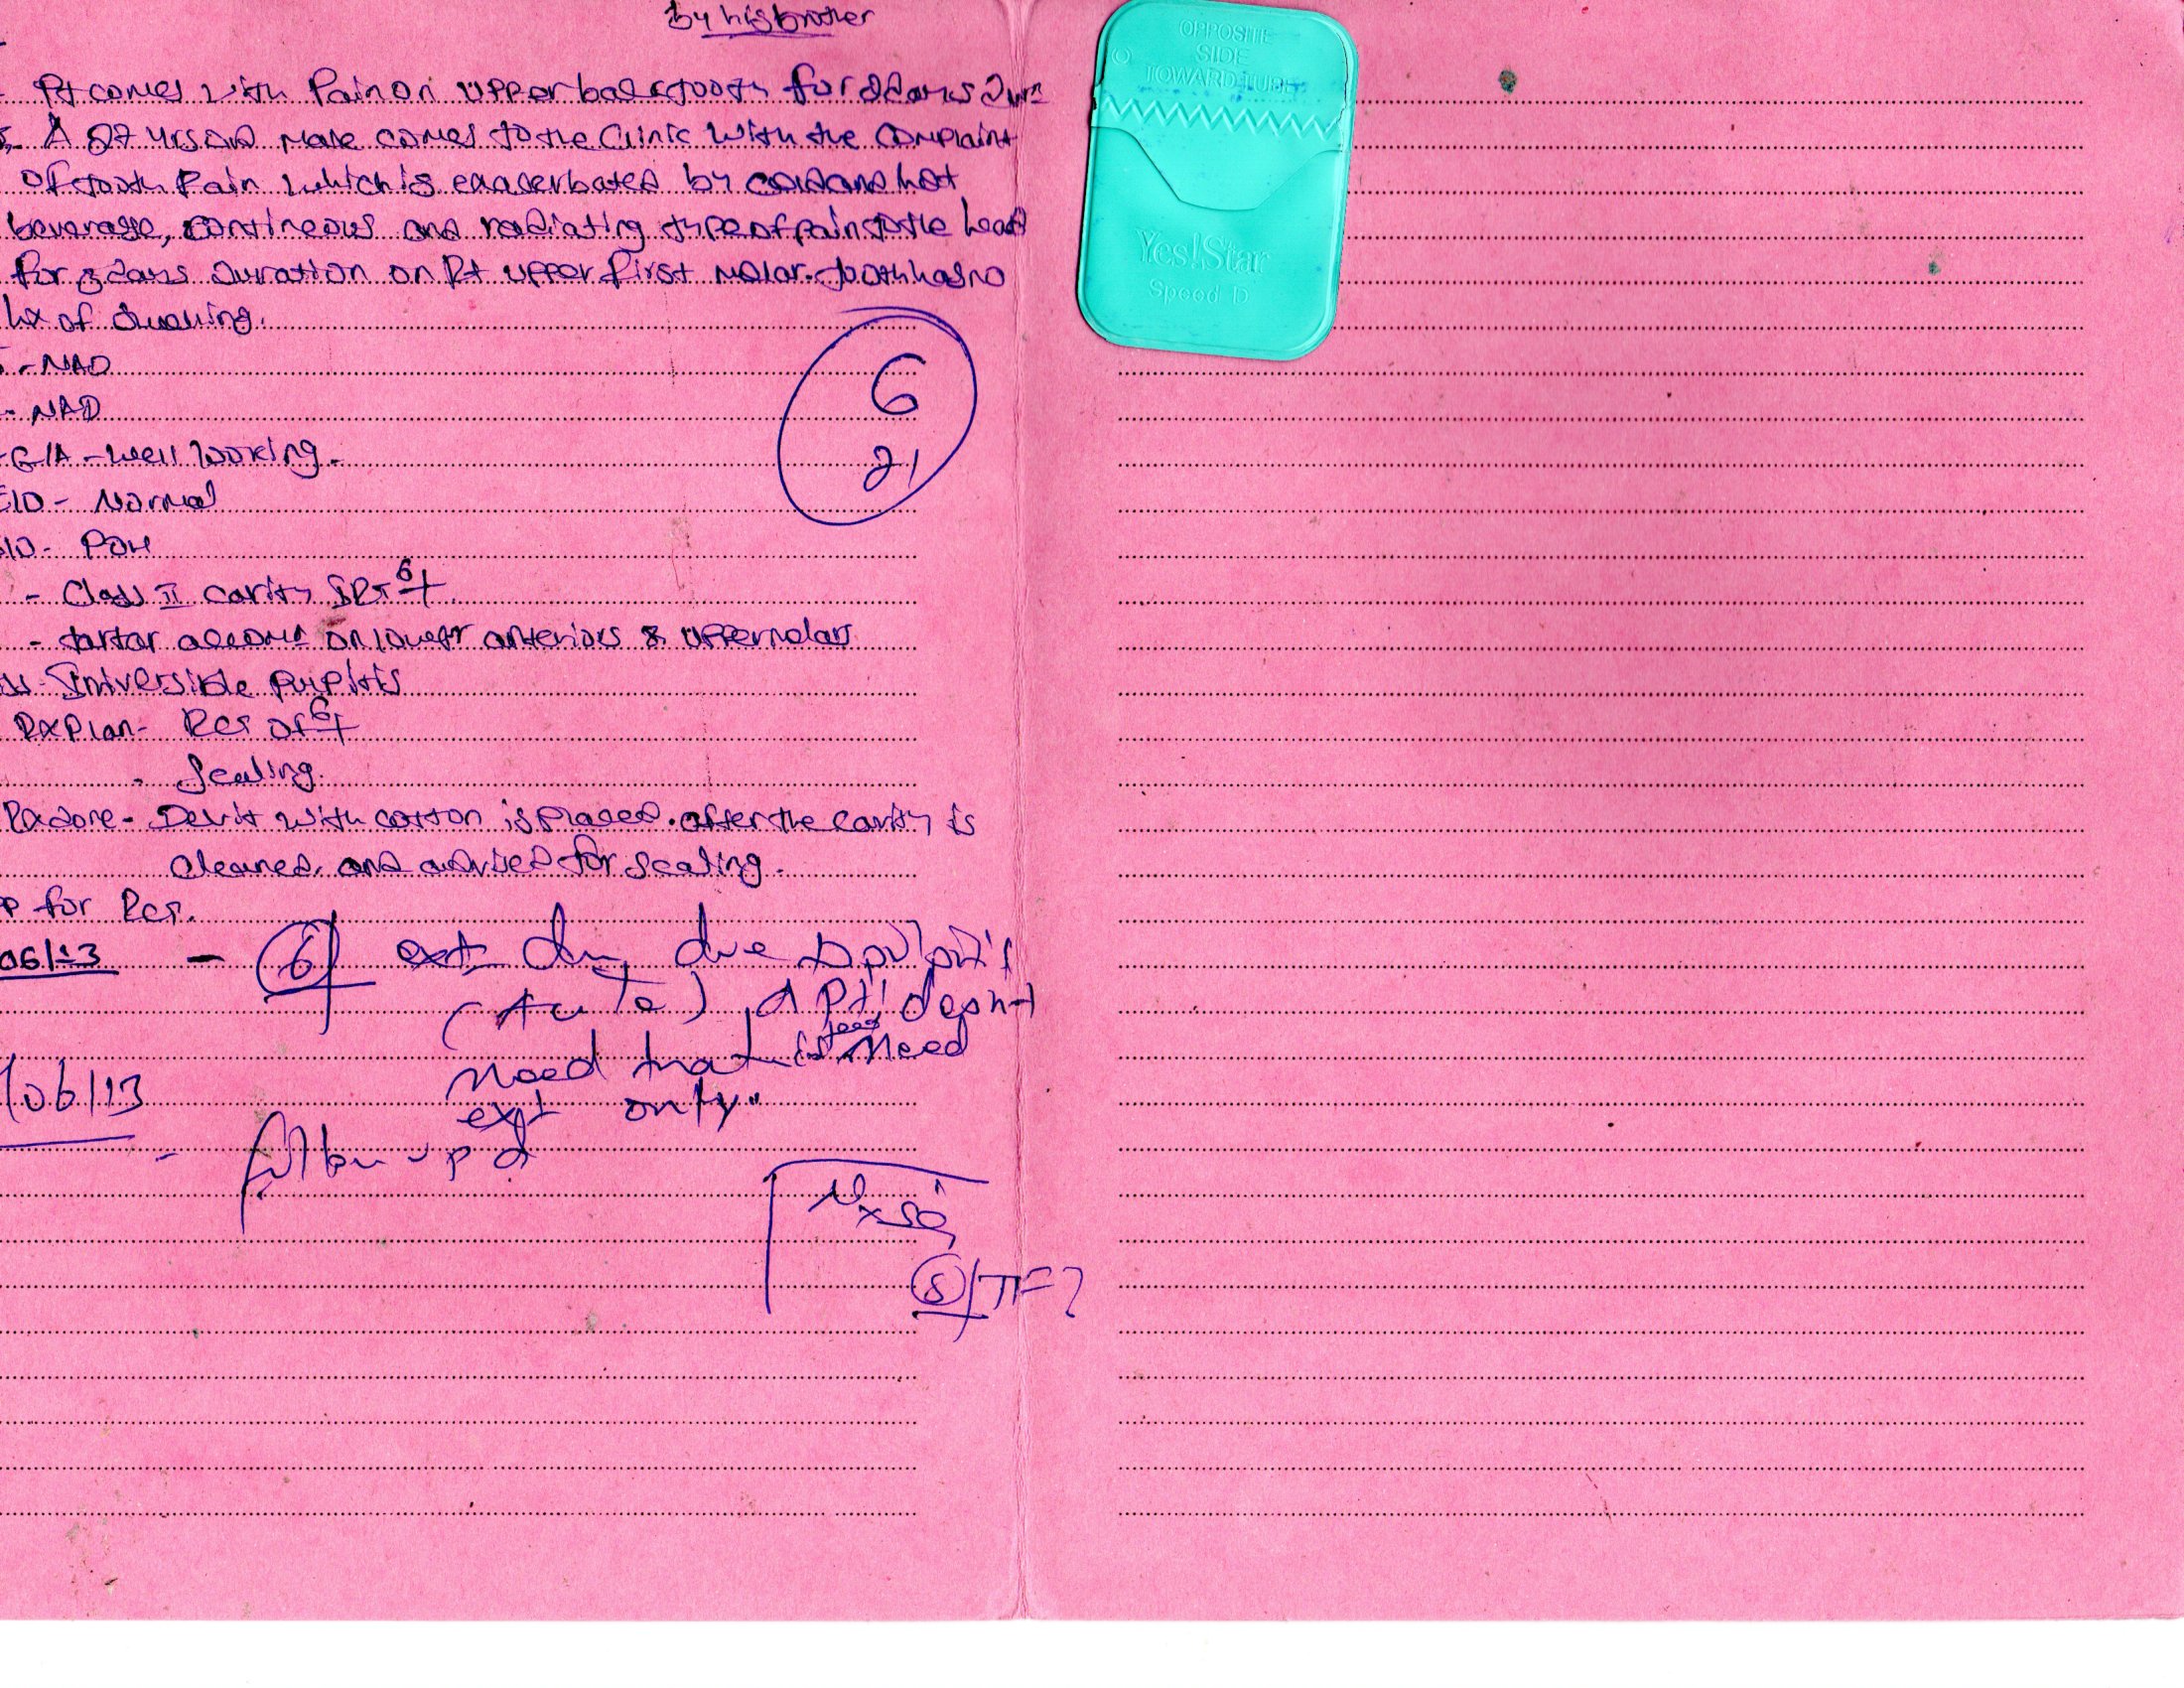 by his brother
Pt comes with Pain on upper back tooth for 3 days
A 27 yrs old male comes to the Clinic with the complaint
of tooth Pain which is exacerbated by cold and hot
beverage, contineous and radiating type of pain to the head
for 3 days duration on Rt upper first molar. tooth has no
hx of swelling.
- NAD
- NAD
G/A - Well looking.
E/O - Normal
I/O - POH
- Class II cavity 6
- tartar on lower anteriors & upper molars
pulpitis
Rx Plan - RCT of 6
- Scaling.
Rx done - Devit with cotton is placed. after the cavity is
cleaned. and advised for scaling.
for RCT.
06/13 - 6 ext due pulpitis
(Acute) Pt
need that need
ext only"
/06/13
- follow up
6
21
8
OPPOSITE
SIDE
TOWARD TUBE
Yes!Star
Speed D